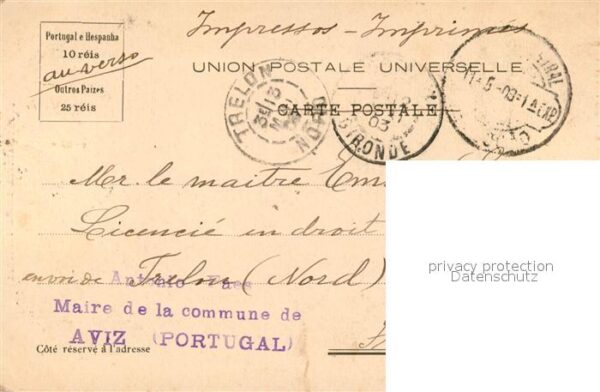 Portugal e Hespanha
10 réis
au verso
Outros Paizes
25 réis
Impressos - Imprimés
UNION POSTALE UNIVERSELLE
CARTE POSTALE
TRELON
NORD
GIRONDE
Mr. le maitre
Licencié en droit
envoi de Trelon (Nord)
Antonio Paes
Maire de la commune de
AVIZ (PORTUGAL)
Côté réservé à l'adresse
privacy protection
Datenschutz